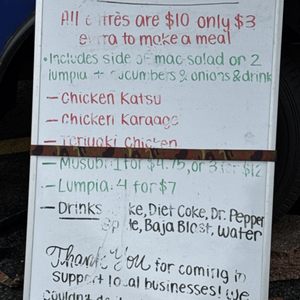 All are $10 only $3
extra to make a meal
• Includes side of mac salad or 2
lumpia + cucumbers & onions & drink
— Chicken Katsu
— Chicken Karaage
— Teriyaki Chicken
— Musubi 1 for $4.75, or 3 for $12
— Lumpia: 4 for $7
— Drinks Diet Coke, Dr. Pepper
Baja Blast, water
Thank You for coming in
support local businesses! We